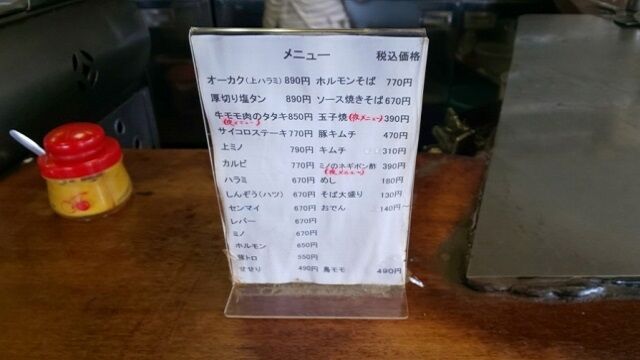 メニュー 税込価格
オーカク(上ハラミ) 890円 ホルモンそば 770円
厚切り塩タン 890円 ソース焼きそば 670円
牛モモ肉のタタキ 850円 玉子焼(夜メニュー) 390円
(夜メニュー)
サイコロステーキ 770円 豚キムチ 470円
上ミノ 790円 キムチ 310円
カルビ 770円 ミノのネギポン酢 390円
(夜メニュー)
ハラミ 670円 めし 180円
しんぞう(ハツ) 670円 そば大盛り 130円
センマイ 670円 おでん 140円~
レバー 670円
ミノ 670円
ホルモン 650円
豚トロ 550円
せせり 490円 鳥モモ 490円